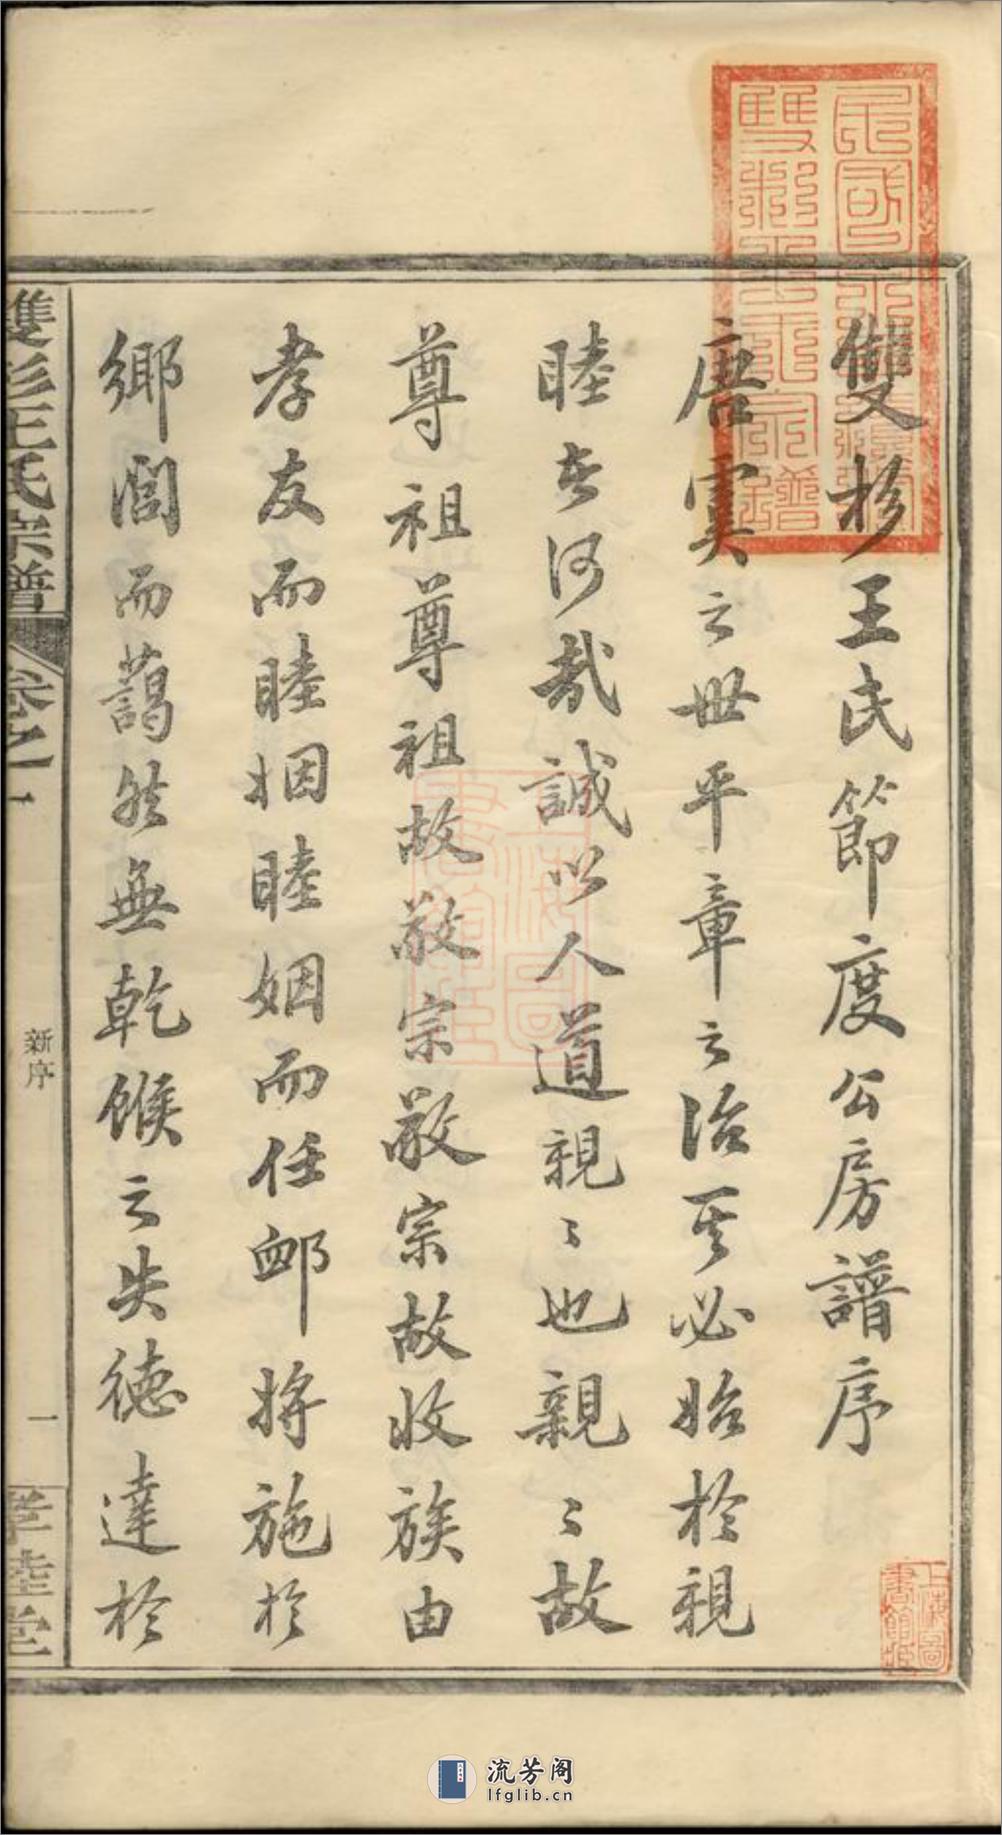 雙杉王氏節度公房譜序
唐虞之世平章之治其必始於親
睦者何哉誠以人道親〻也親〻故
尊祖尊祖故敬宗敬宗故收族由
孝友而睦姻睦姻而任卹將施於
鄉閭而藹然無乾餱之失德達於
雙杉王氏宗譜
卷之一
新序
一
孝睦堂
上海圖書館藏
流芳阁
lfglib.cn